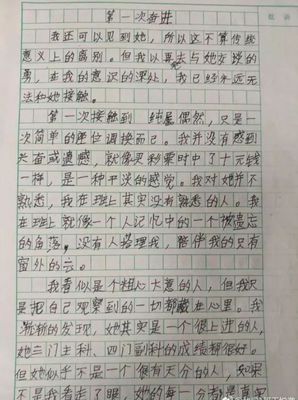 第一次奋进
我还可以见到她,所以这不算传统
意义上的离别。但我以再去与她交谈的
勇,在我的意识的深处,我已经永远无
法和她接触。
第一次接触到 纯属偶然,只是一
次简单的座位调换而已。我并没有感到
兴奋或遗憾,就像买彩票时中了十元钱
一样,是一种平淡的感觉。我对她并不
熟悉,我在班上其实没有熟悉的人。我
在班上就像一个人记忆中的一个被遗忘
的角落,没有人搭理我,陪伴我的只有
窗外的云。
我看似是个粗心大意的人,但我只
是把自己观察到的一切都藏在心里。我
渐渐的发现,她其实是一个很上进的人,
她三门主科、四门副科的成绩都很好。
但她似乎不是一个很有天分的人,如果
不是我看走了眼,她的每一分都是真实